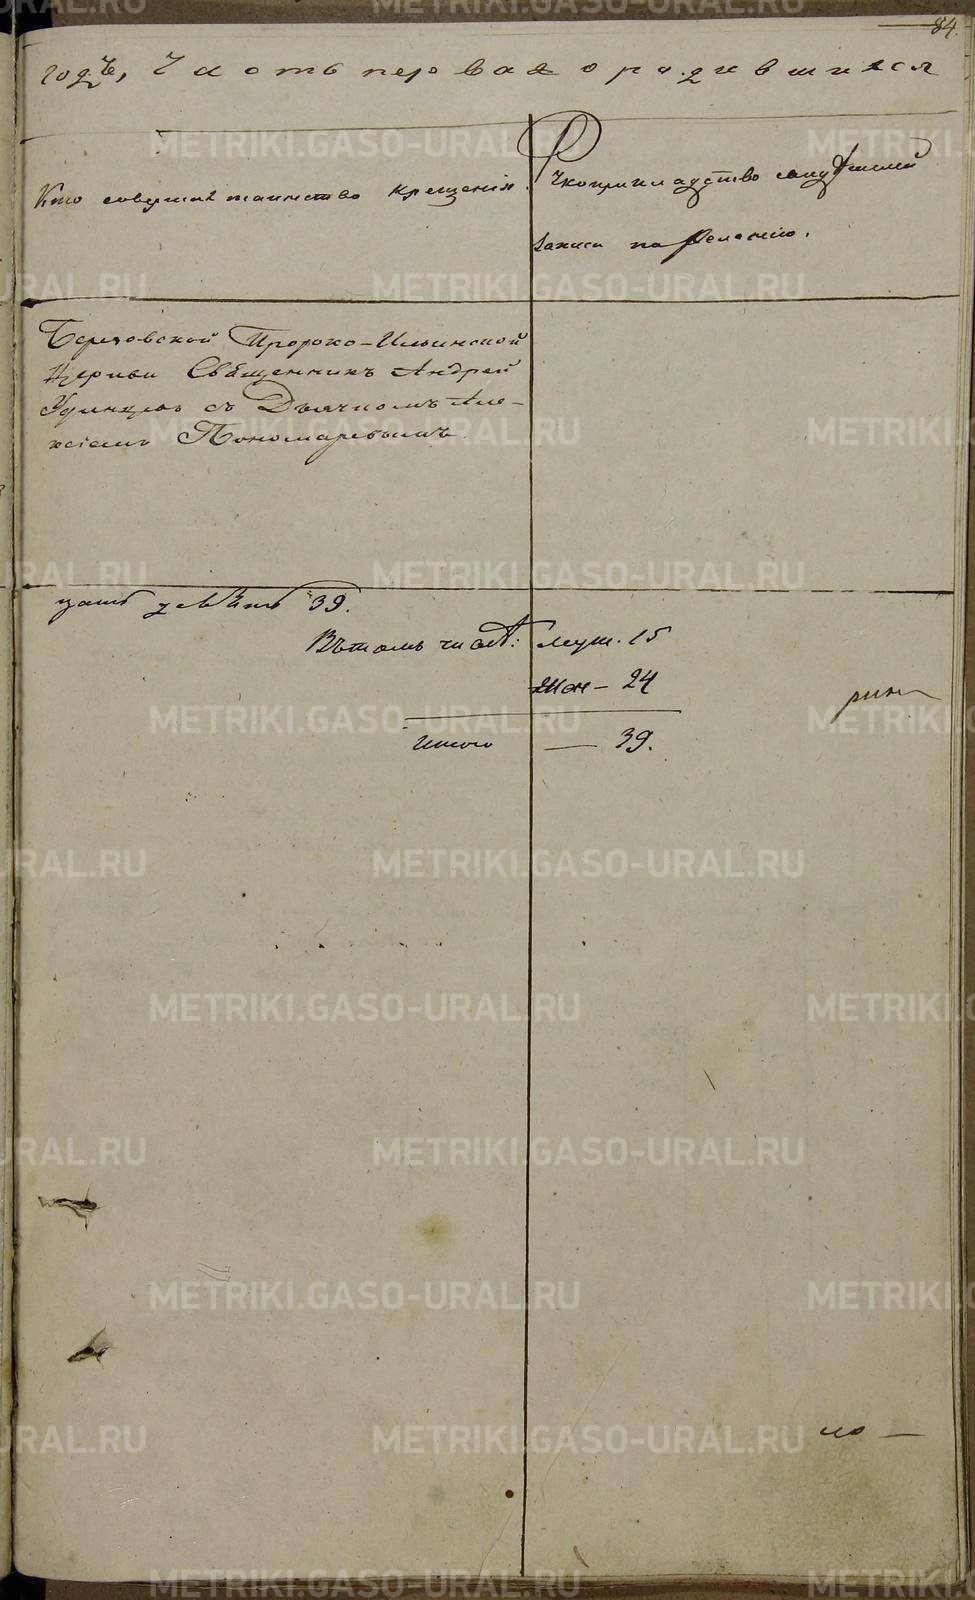 84.
годъ, Часть первая о родившихся
Кто совершал таинство крещенія.
Рукоприкладство свидѣтелей
записи по желанію.
Березовской Пророко-Ильинской
Церкви Священникъ Андрей
Удинцов съ Дьячкомъ Але-
ксѣемъ Пономаревымъ.
цать девять 39.
Въ томъ числѣ: Муж. 15
Жен – 24
Итого — 39.
METRIKI.GASO-URAL.RU